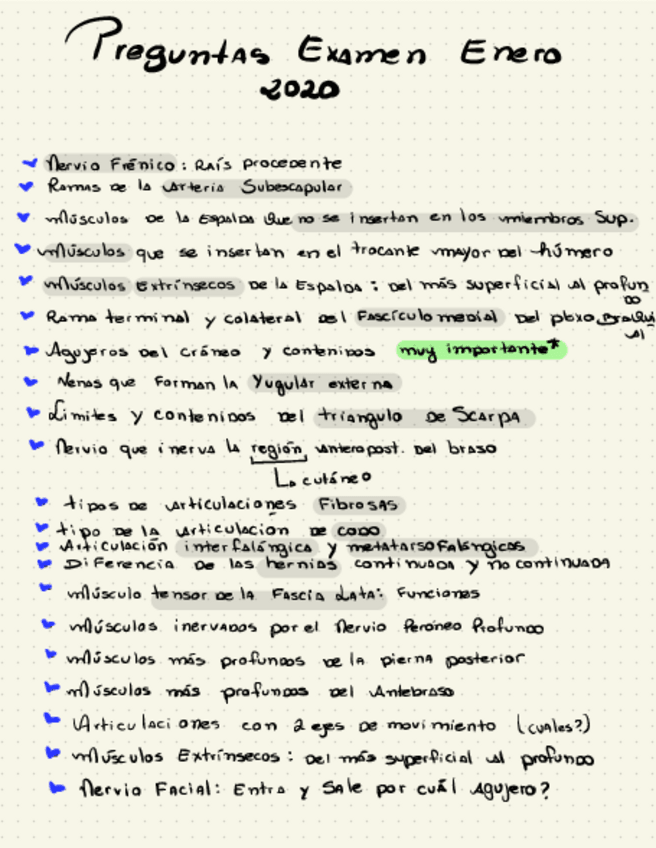 Preguntas Examen Enero
2020
Nervio Frénico: Raís procedente
Ramas de la Arteria Subescapular
Músculos de la Espalda que no se insertan en los miembros Sup.
Músculos que se insertan en el trocante mayor del húmero
Músculos Extrínsecos de la Espalda: Del más superficial al profundo
Rama terminal y colateral del Fascículo medial Del plexo Braquial
Agujeros del cráneo y contenidos muy importante*
Venas que Forman la Yugular externa
Límites y contenidos del triangulo de Scarpa
Nervio que inerva la región anteropost. Del braso
cutáneo
tipos de articulaciones Fibrosas
tipo de la articulación de codo
Articulación interfalángica y metatarsofalángicas
Diferencia de las hernias continuada y no continuada
Músculo tensor de la Fascia Lata: Funciones
Músculos inervados por el Nervio Peroneo Profundo
Músculos más profundos de la pierna posterior
Músculos más profundos del Antebraso
Articulaciones con 2 ejes de movimiento (cuales?)
Músculos Extrínsecos: del más superficial al profundo
Nervio Facial: Entra y Sale por cuál Agujero?